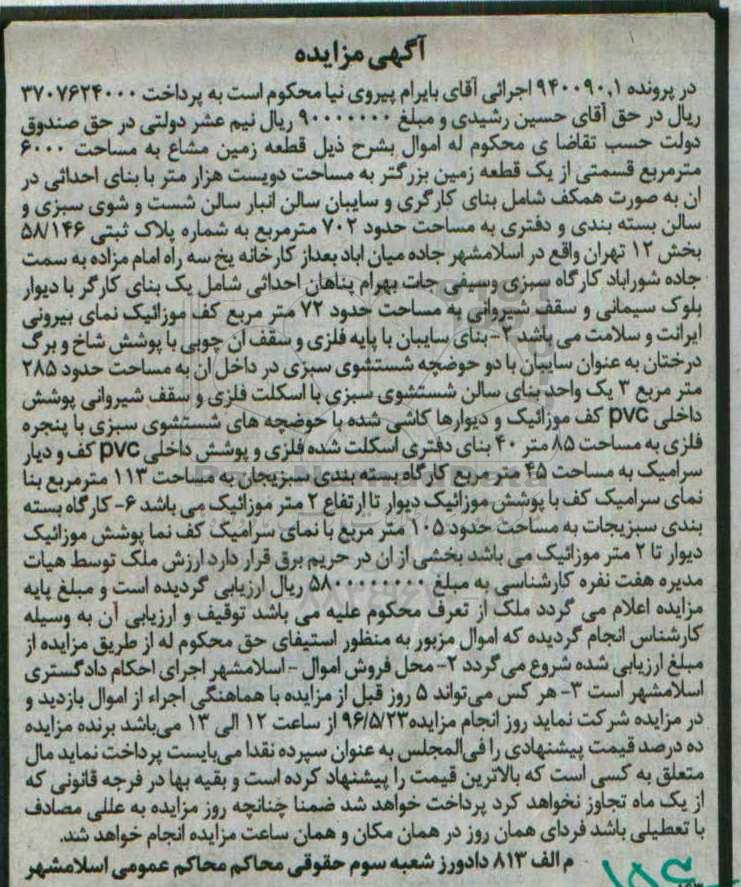 آگهی مزایده
در پرونده ۹۴۰۰۹۰.۱ اجرائی آقای بایرام پیروی نیا محکوم است به پرداخت ۳۷۰۷۶۲۴۰۰۰
ریال در حق آقای حسین رشیدی و مبلغ ۹۰۰۰۰۰۰۰ ریال نیم عشر دولتی در حق صندوق
دولت حسب تقاضا ی محکوم له اموال بشرح ذیل قطعه زمین مشاع به مساحت ۶۰۰۰
مترمربع قسمتی از یک قطعه زمین بزرگتر به مساحت دویست هزار متر با بنای احداثی در
ان به صورت همکف شامل بنای کارگری و سایبان سالن انبار سالن شست و شوی سبزی و
سالن بسته بندی و دفتری به مساحت حدود ۷۰۲ مترمربع به شماره پلاک ثبتی ۵۸/۱۴۶
بخش ۱۲ تهران واقع در اسلامشهر جاده میان اباد بعداز کارخانه یخ سه راه امام مزاده به سمت
جاده شوراباد کارگاه سبزی وسیفی جات بهرام پناهان احداثی شامل یک بنای کارگر با دیوار
بلوک سیمانی و سقف شیروانی به مساحت حدود ۷۲ متر مربع کف موزائیک نمای بیرونی
ایرانت و سلامت می باشد ۲- بنای سایبان با پایه فلزی و سقف ان چوبی با پوشش شاخ و برگ
درختان به عنوان سایبان با دو حوضچه شستشوی سبزی در داخل ان به مساحت حدود ۲۸۵
متر مربع ۳ یک واحد بنای سالن شستشوی سبزی با اسکلت فلزی و سقف شیروانی پوشش
داخلی pvc کف موزائیک و دیوارها کاشی شده با حوضچه های شستشوی سبزی با پنجره
فلزی به مساحت ۸۵ متر ۴۰ بنای دفتری اسکلت شده فلزی و پوشش داخلی pvc کف و دیار
سرامیک به مساحت ۴۵ متر مربع کارگاه بسته بندی سبزیجان به مساحت ۱۱۳ مترمربع بنا
نمای سرامیک کف با پوشش موزائیک دیوار تا ارتفاع ۲ متر موزائیک می باشد ۶- کارگاه بسته
بندی سبزیجات به مساحت حدود ۱۰۵ متر مربع با نمای سرامیک کف نما پوشش موزائیک
دیوار تا ۲ متر موزائیک می باشد بخشی از ان در حریم برق قرار دارد ارزش ملک توسط هیات
مدیره هفت نفره کارشناسی به مبلغ ۵۸۰۰۰۰۰۰۰۰۰ ریال ارزیابی گردیده است و مبلغ پایه
مزایده اعلام می گردد ملک از تعرف محکوم علیه می باشد توقیف و ارزیابی آن به وسیله
کارشناس انجام گردیده که اموال مزبور به منظور استیفای حق محکوم له از طریق مزایده از
مبلغ ارزیابی شده شروع می گردد ۲- محل فروش اموال - اسلامشهر اجرای احکام دادگستری
اسلامشهر است ۳- هر کس می‌تواند ۵ روز قبل از مزایده با هماهنگی اجراء از اموال بازدید و
در مزایده شرکت نماید روز انجام مزایده۹۶/۵/۲۳ از ساعت ۱۲ الی ۱۳ می‌باشد برنده مزایده
ده درصد قیمت پیشنهادی را فی‌المجلس به عنوان سپرده نقدا می‌بایست پرداخت نماید مال
متعلق به کسی است که بالاترین قیمت را پیشنهاد کرده است و بقیه بها در فرجه قانونی که
از یک ماه تجاوز نخواهد کرد پرداخت خواهد شد ضمنا چنانچه روز مزایده به عللی مصادف
با تعطیلی باشد فردای همان روز در همان مکان و همان ساعت مزایده انجام خواهد شد.
م الف ۸۱۳ دادورز شعبه سوم حقوقی محاکم محاکم عمومی اسلامشهر